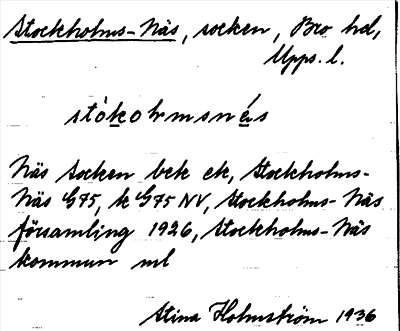 Stockholms-Näs, socken, Bro hd,
Upps. l.
stókohmsnés
Näs socken bek ek, Stockholms-
Näs G75, k G75 NV, Stockholms-Näs
församling 1926, Stockholms-Näs
kommun ml
Stina Holmström 1936